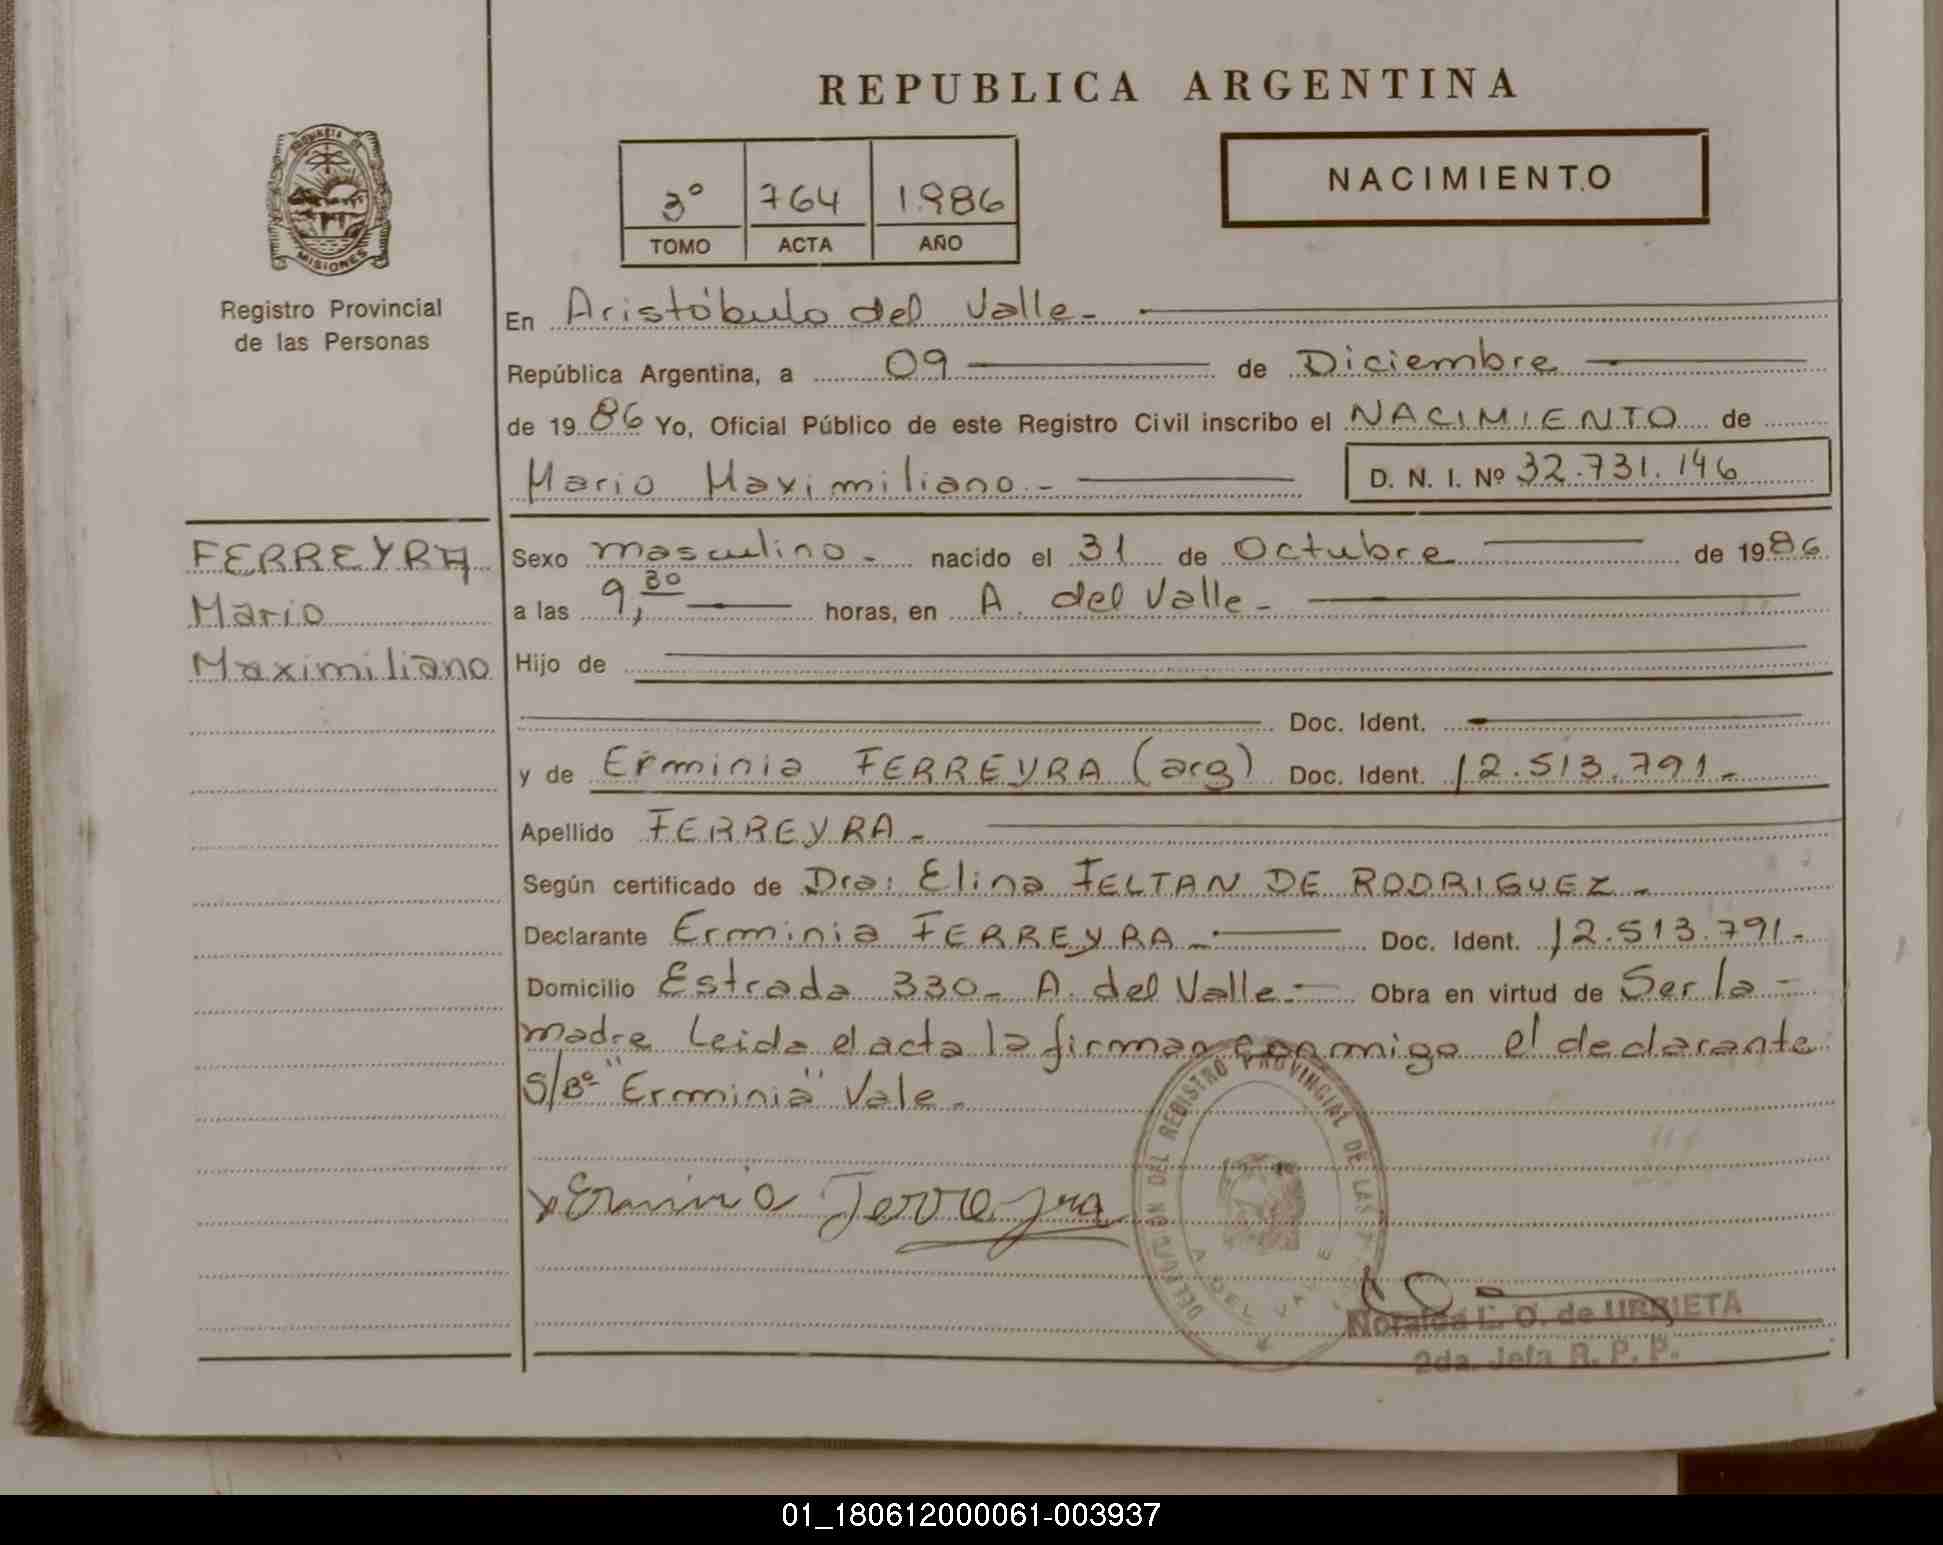 REPUBLICA ARGENTINA
PROVINCIA DE
MISIONES
Registro Provincial
de las Personas
3º 764 1.986
TOMO ACTA AÑO
NACIMIENTO
En Aristóbulo del Valle.-
República Argentina, a 09 de Diciembre
de 19 86 Yo, Oficial Público de este Registro Civil inscribo el NACIMIENTO de
Mario Maximiliano.- D. N. I. Nº 32.731.146
FERREYRA
Mario
Maximiliano
Sexo masculino.- nacido el 31 de Octubre de 1986
a las 9,30 horas, en A. del Valle.-
Hijo de
Doc. Ident.
y de Erminia FERREYRA (arg) Doc. Ident. 12.513.791.-
Apellido FERREYRA.-
Según certificado de Dra: Elina FELTAN DE RODRIGUEZ.-
Declarante Erminia FERREYRA.- Doc. Ident. 12.513.791.-
Domicilio Estrada 330.- A. del Valle.- Obra en virtud de Ser la -
madre Leida el acta la firman conmigo el declarante
S/Bº "Erminia" Vale.-
x Erminia Ferreyra
DELEGACION DEL REGISTRO PROVINCIAL DE LAS
A. DEL VALLE
L. O. de URRIETA
2da. Jefa R. P. P.
01_180612000061-003937